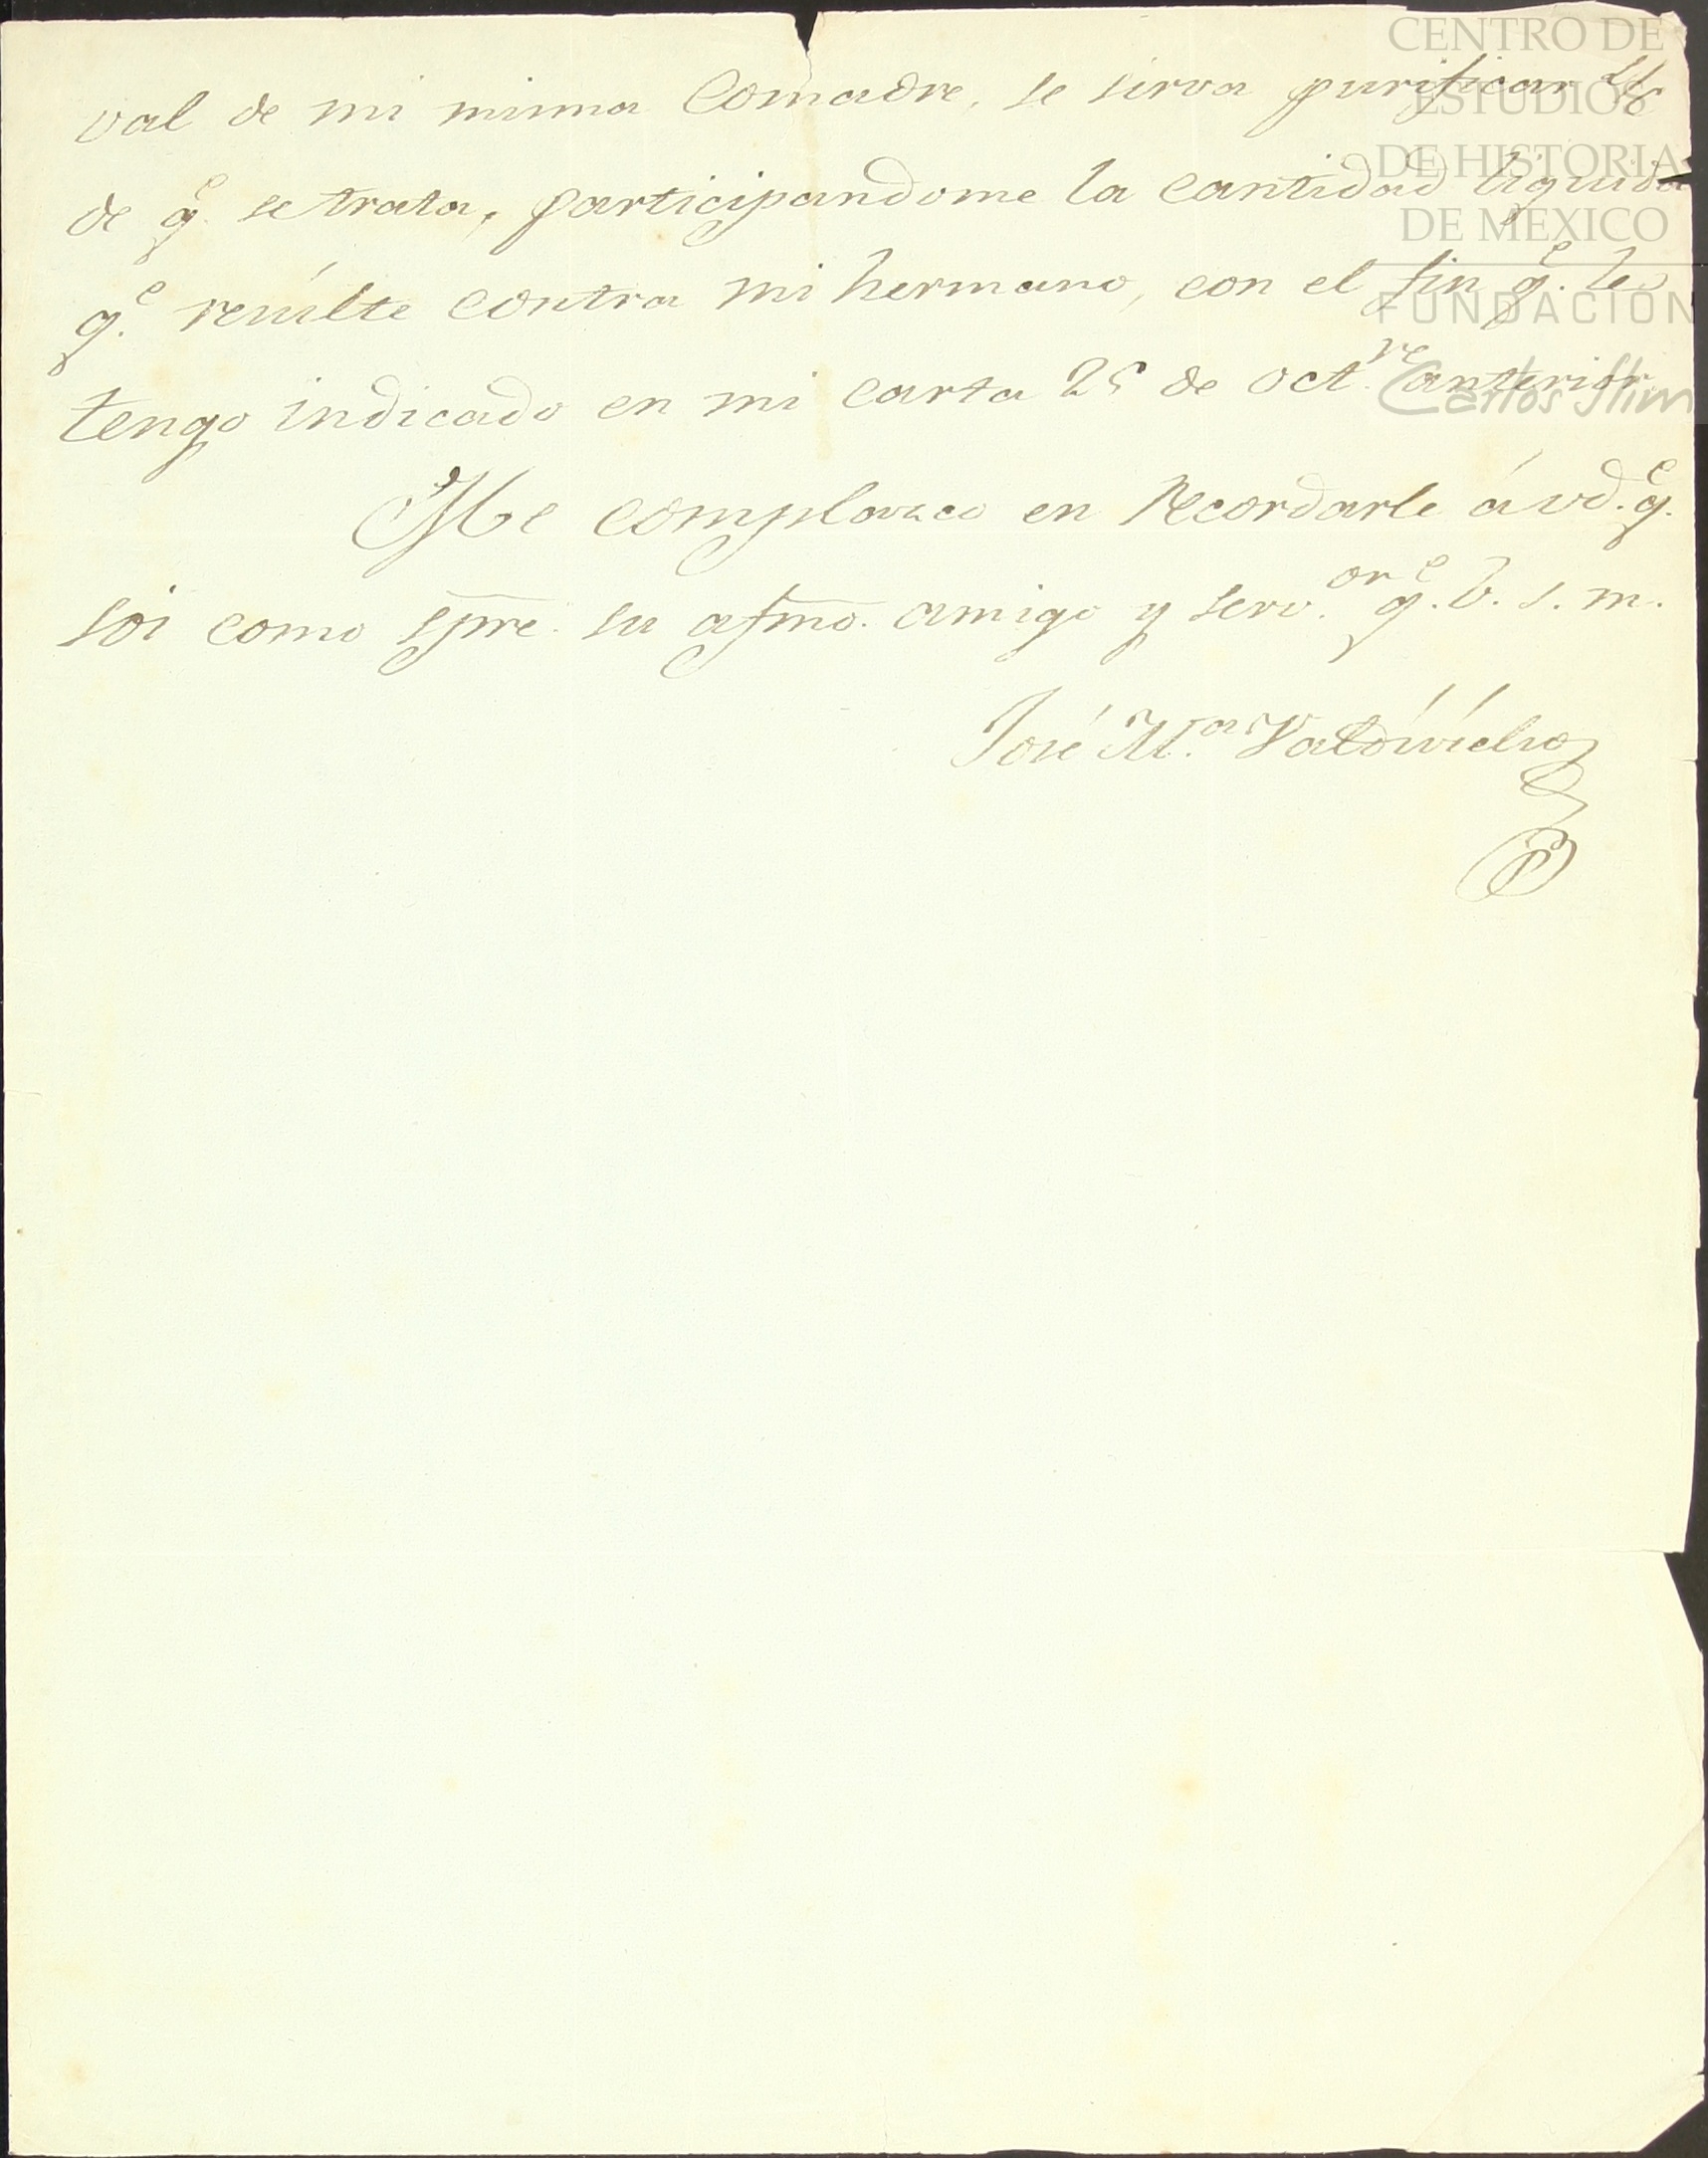 val de mi misma Comadre, se sirva purificar
de q.e se trata, participandome la cantidad liquida
q.e resulte contra mi hermano, con el fin q.e les
tengo indicado en mi carta 25 de oct.re anterior.
Me complazco en recordarle á vd. q.e
soi como spre. su afmo. amigo y serv.or q.e b. s. m.
José M.a Valdivielso
CENTRO DE
ESTUDIOS
DE HISTORIA
DE MEXICO
FUNDACIÓN
Carlos Slim